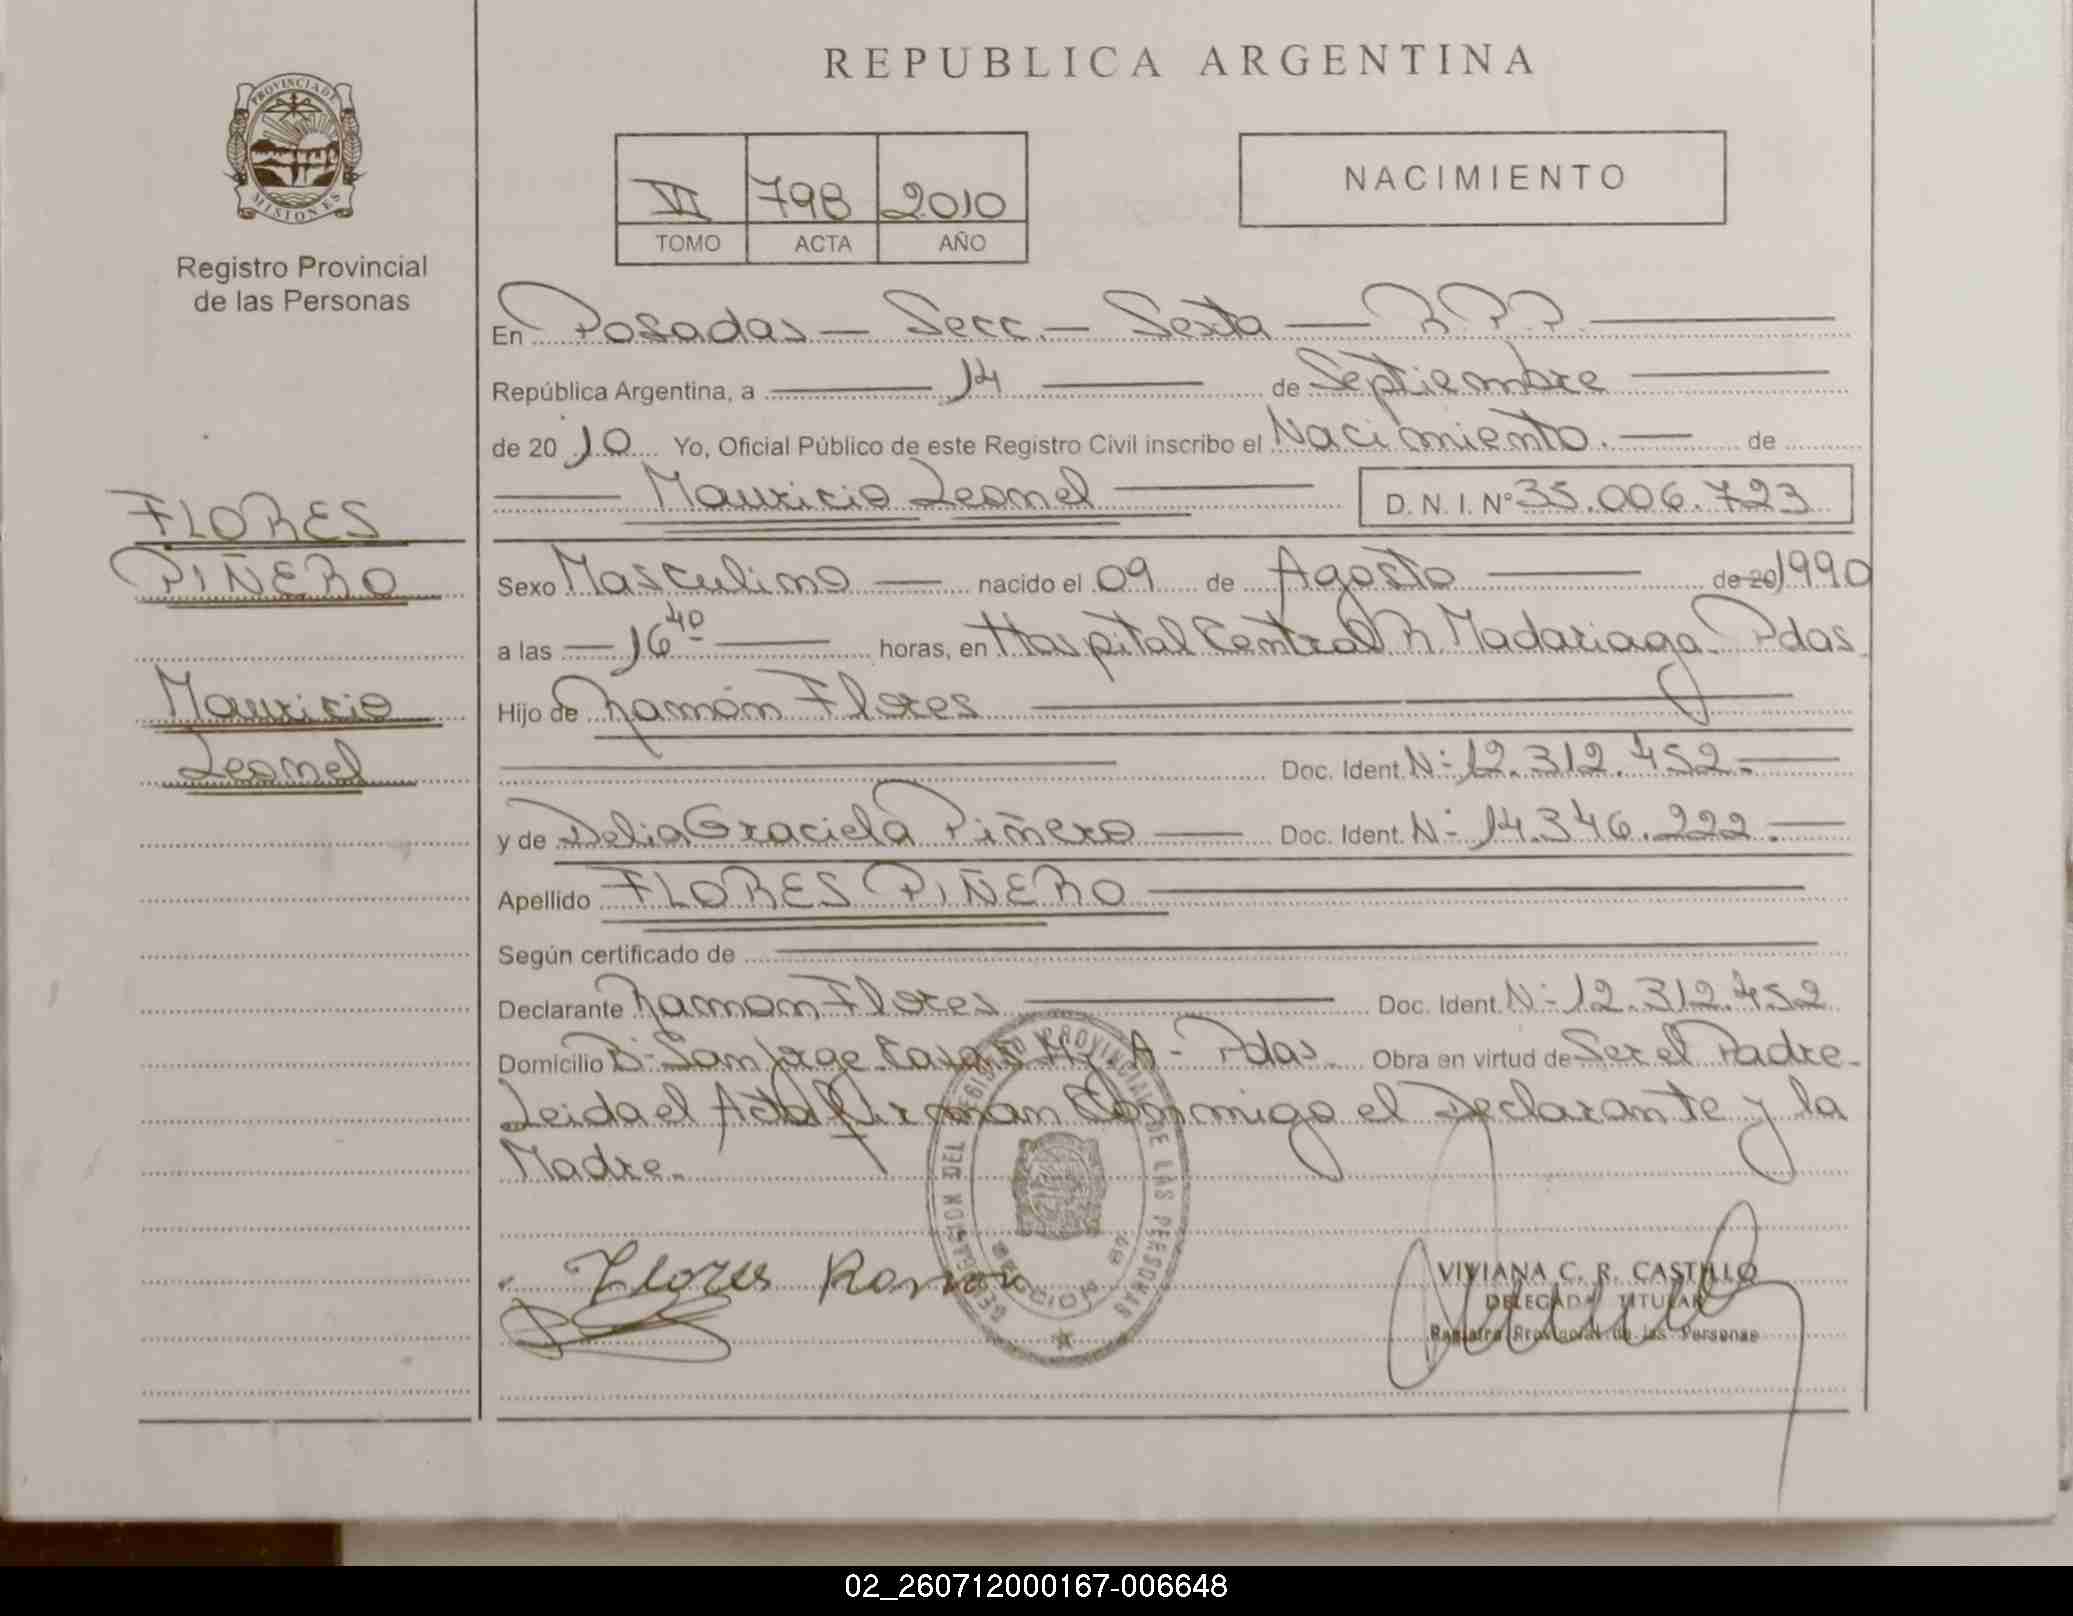 REPUBLICA ARGENTINA
PROVINCIA DE
MISIONES
Registro Provincial
de las Personas
VI 798 2010
TOMO ACTA AÑO
NACIMIENTO
En Posadas - Secc. - Sexta - R.P.P.
República Argentina, a 14 de Septiembre
de 2010 Yo, Oficial Público de este Registro Civil inscribo el Nacimiento. de
Mauricio Leonel D.N.I. Nº 35.006.723
FLORES
PIÑERO
Mauricio
Leonel
Sexo Masculino nacido el 09 de Agosto de 20 1990
a las 16 40 horas, en Hospital Central R Madariaga. Pdas.
Hijo de Ramón Flores
Doc. Ident. Nº 12.312.452.
y de Delia Graciela Piñero Doc. Ident. Nº 14.346.222.
Apellido FLORES PIÑERO
Según certificado de
Declarante Ramon Flores Doc. Ident. Nº 12.312.452
Domicilio Bº San Jorge Casa A - Pdas. Obra en virtud de Ser el Padre.
Leida el Acta firman Conmigo el Declarante y la
Madre.
Flores Ramon
DELEGACION DEL REGISTRO PROVINCIAL DE LAS PERSONAS
VIVIANA C. R. CASTILLO
DELEGADA TITULAR
Registro Provincial de las Personas
02_260712000167-006648